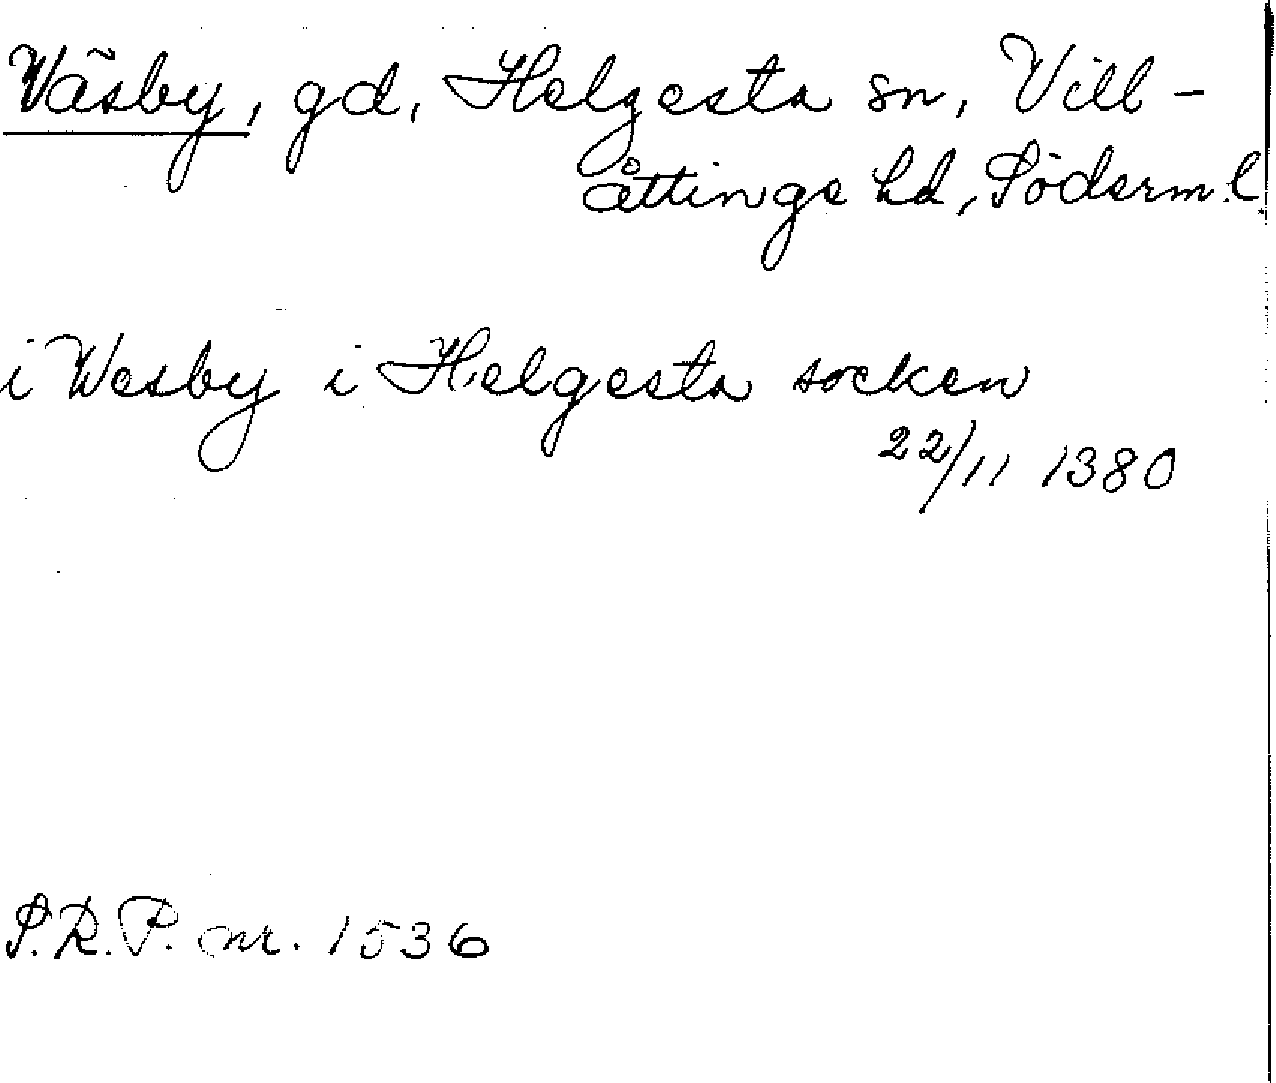 Väsby, gd, Helgesta sn, Vill-
åttinge hd, Söderml.
i Wesby i Helgesta socken
22/11 1380
S.R.P. nr. 1536